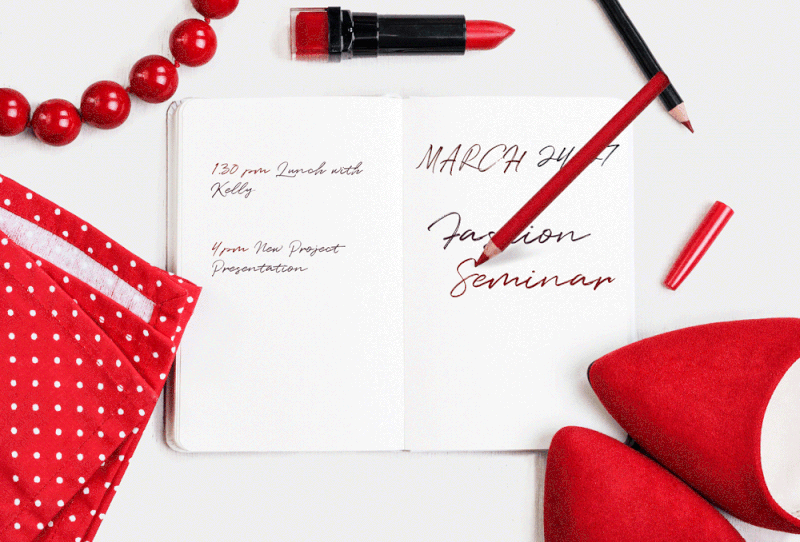 1.30 pm Lunch with
Kelly
4 pm New Project
Presentation
MARCH 24
Fashion
Seminar